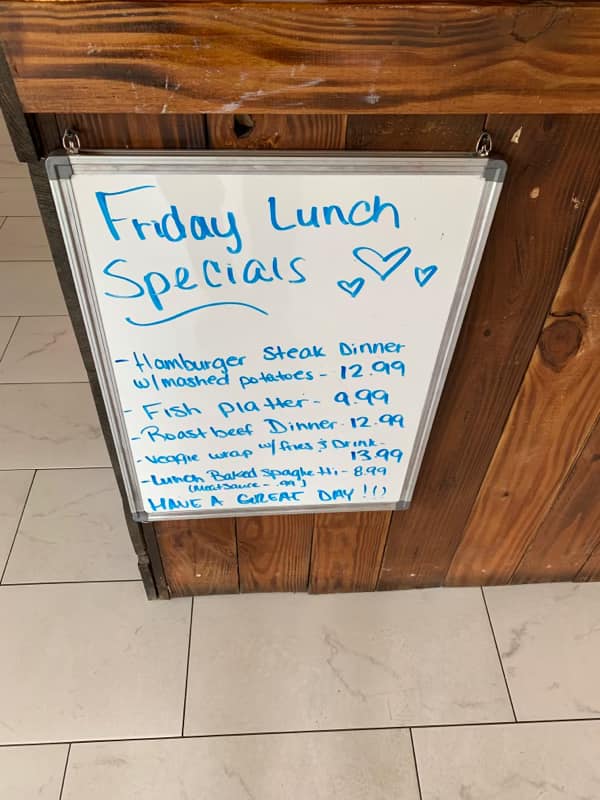 Friday Lunch
Specials
- Hamburger Steak Dinner
w/mashed potatoes - 12.99
- Fish platter - 9.99
- Roast beef Dinner - 12.99
- veggie wrap w/fries & Drink -
13.99
- Lunch Baked Spaghetti - 8.99
(Meat Sauce - .99)
HAVE A GREAT DAY!!)